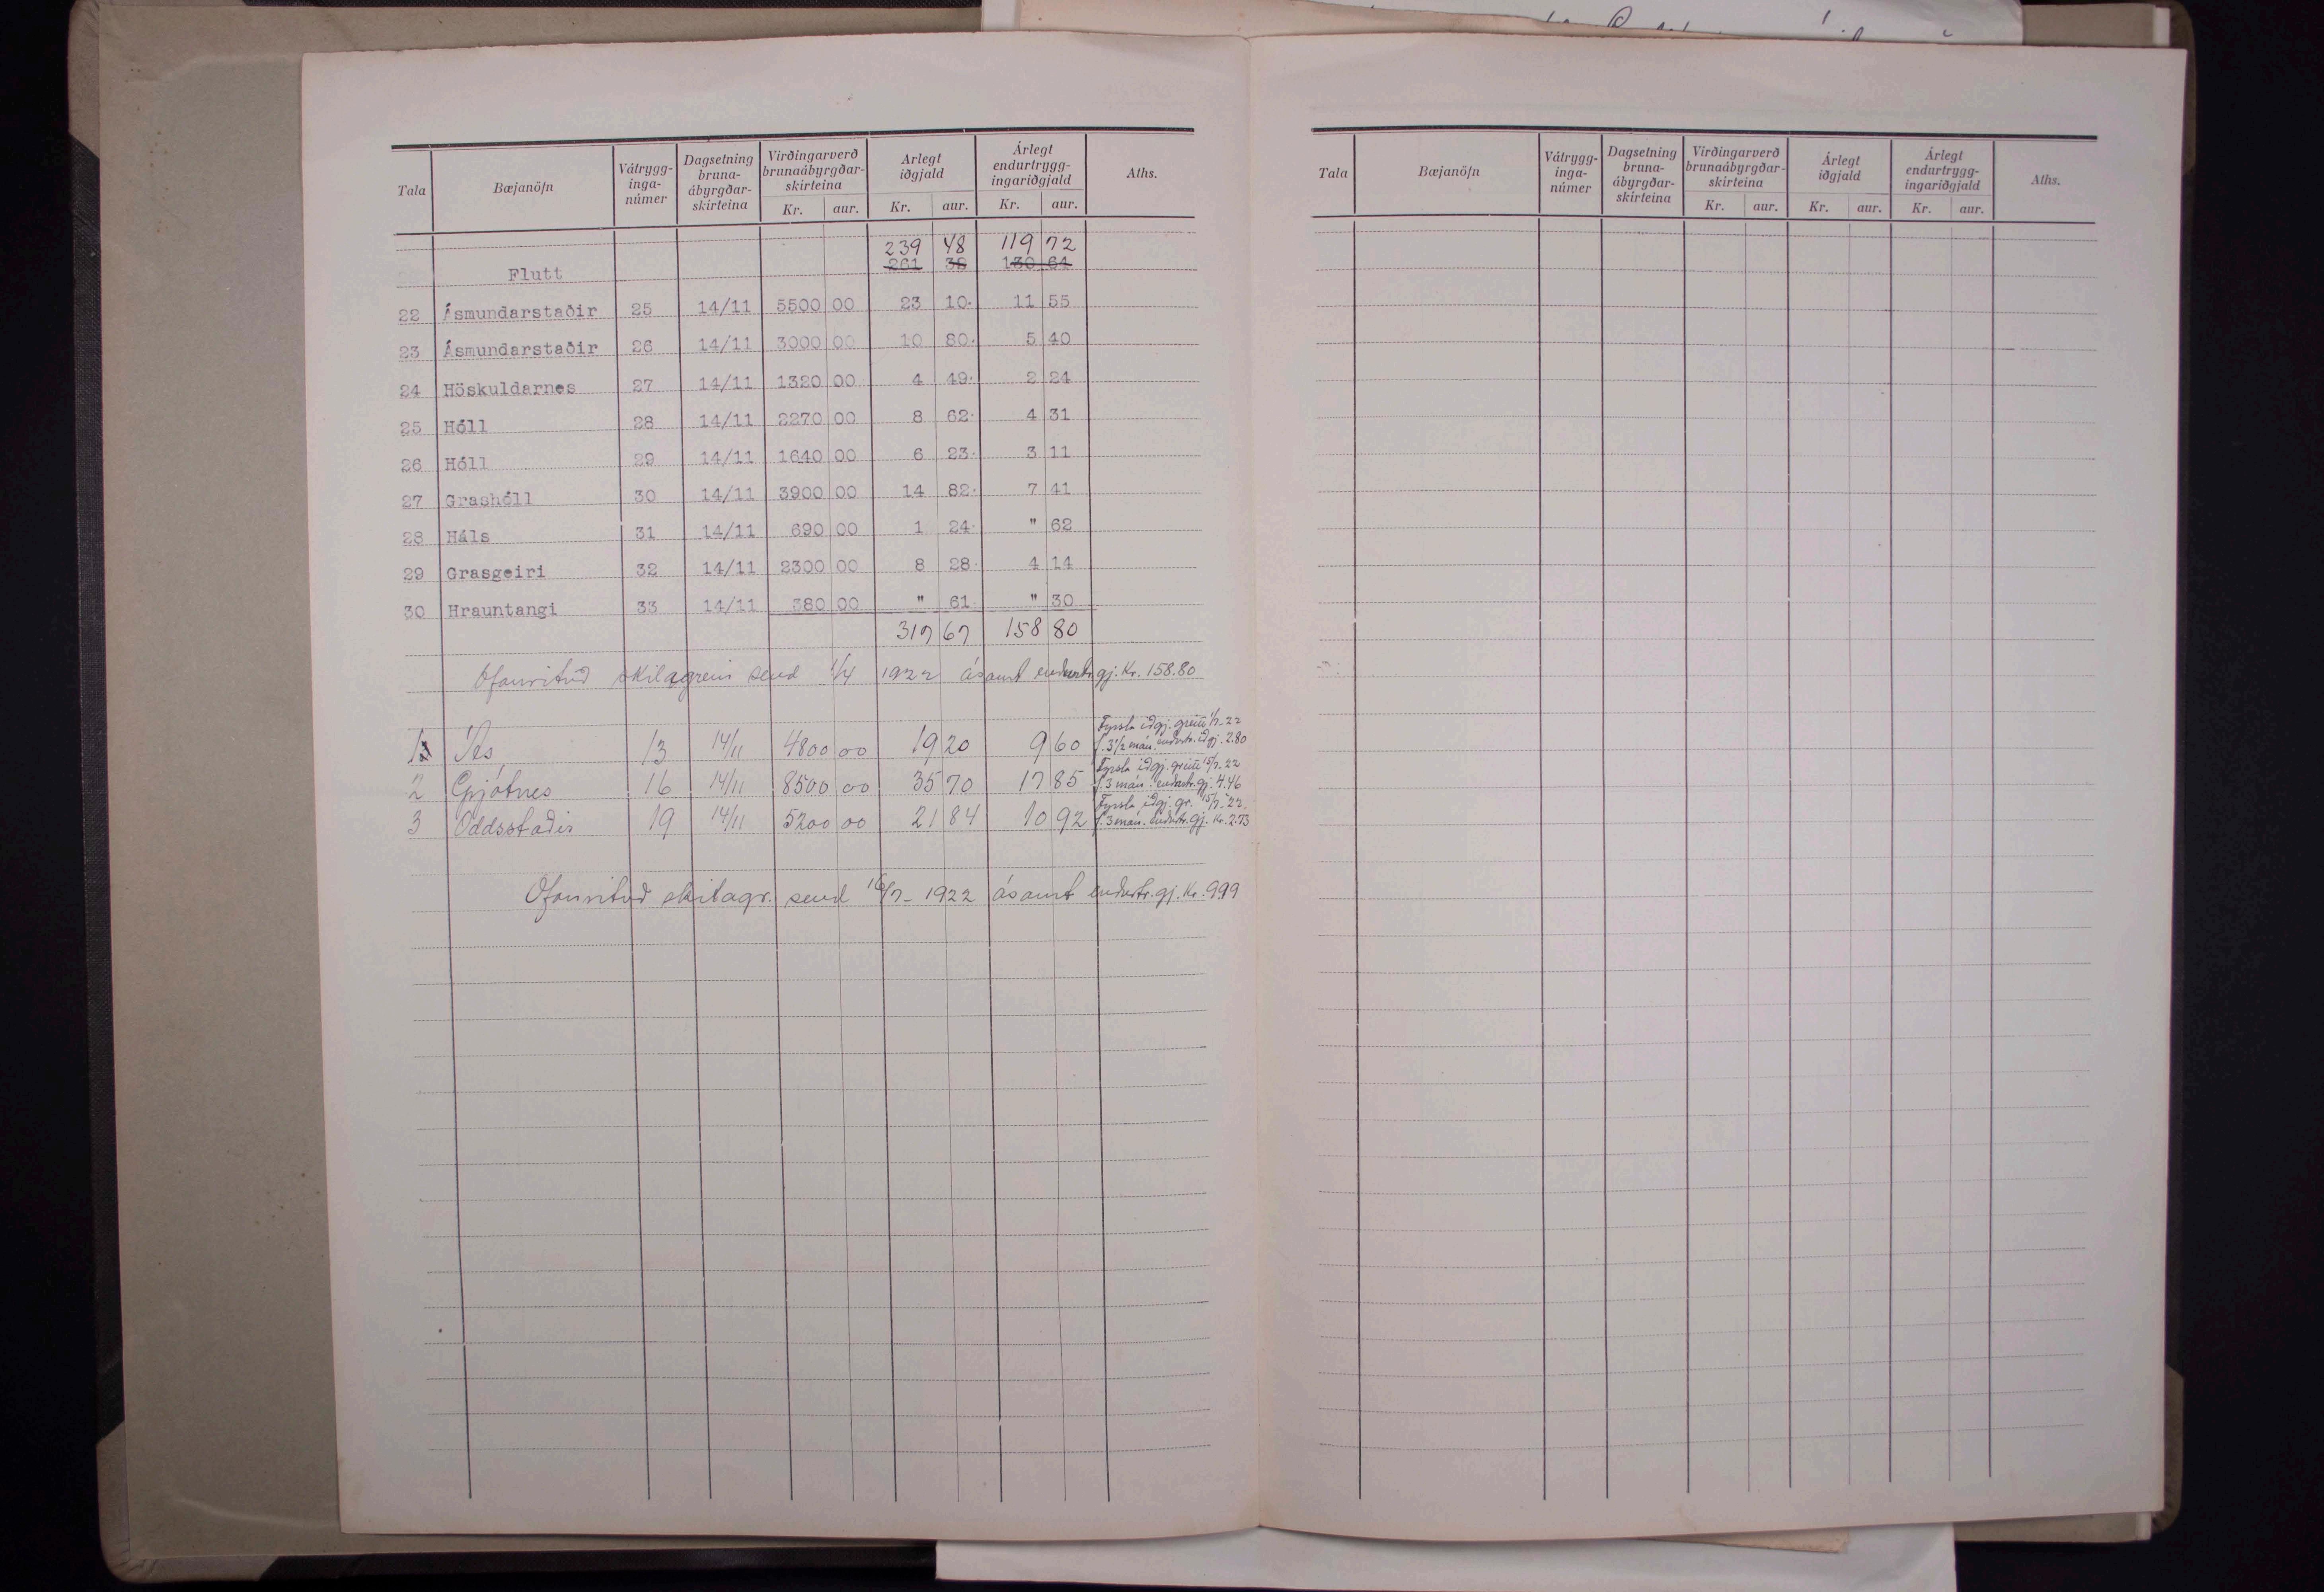 Tala Bæjanöfn Vátrygg-inga-númer Dagsetning bruna-ábyrgðar-skirteina Virðingarverð brunaábyrgðar-skirteina Kr. aur. Arlegt iðgjald Kr. aur. Árlegt endurtrygg-ingariðgjald Kr. aur. Aths.
239 48 119 72
Flutt 261 38 130 64
22 Ásmundarstaðir 25 14/11 5500 00 23 10. 11 55
23 Ásmundarstaðir 26 14/11 3000 00 10 80. 5 40
24 Höskuldarnes 27 14/11 1320 00 4 49. 2 24
25 Hóll 28 14/11 2270 00 8 62. 4 31
26 Hóll 29 14/11 1640 00 6 23. 3 11
27 Grashóll 30 14/11 3900 00 14 82. 7 41
28 Háls 31 14/11 690 00 1 24. " 62
29 Grasgeiri 32 14/11 2300 00 8 28. 4 14
30 Hrauntangi 33 14/11 380 00 " 61. " 30
317 67 158 80
Ofanrituð skilagrein send 1/4 1922 ásamt endurtr.gj. Kr. 158.80
1 Ás 13 14/11 4800 00 19 20 9 60 Fyrsta iðgj. greitt 1/7-22
f. 3 1/2 mán. endurtr. iðgj. 2.80
2 Grjótnes 16 14/11 8500 00 35 70 17 85 Fyrsta iðgj. greitt 15/7-22
f. 3 mán. endurtr.gj. 4.46
3 Oddsstaðir 19 14/11 5200 00 21 84 10 92 Fyrsta iðgj. gr. 15/7-22.
f. 3 mán. endurtr.gj. Kr. 2.73
Ofanrituð skilagr. send 16/7-1922 ásamt endurtr.gj. Kr. 9.99
Tala Bæjanöfn Vátrygg-inga-númer Dagsetning bruna-ábyrgðar-skirteina Virðingarverð brunaábyrgðar-skirteina Kr. aur. Árlegt iðgjald Kr. aur. Árlegt endurtrygg-ingariðgjald Kr. aur. Aths.